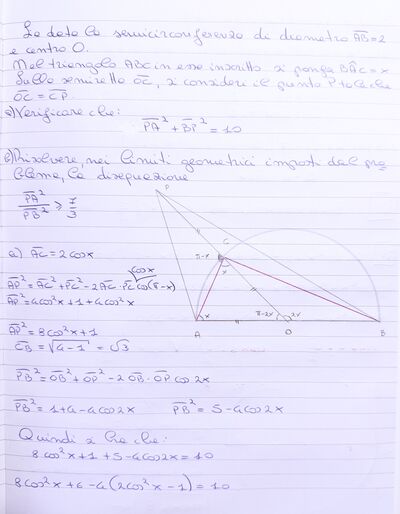 È data la semicirconferenza di diametro AB=2
e centro O.
Nel triangolo ABC in essa inscritto si ponga BÂC=x
Sulla semiretta OC, si consideri il punto P tale che
OC=CP.
a) Verificare che:
PA²+BP²=10
b) Risolvere, nei limiti geometrici imposti dal pro
blema, la disequazione
PA²/PB² ≥ 7/3
a) AC=2cosx
cosx
AP²=AC²+PC²-2AC·PC cos(π-x)
AP²=4cos²x+1+4cos²x
AP²=8cos²x+1
CB=√4-1=√3
PB²=OB²+OP²-2OB·OP cos2x
PB²=1+4-4cos2x PB²=5-4cos2x
Quindi si ha che:
8cos²x+1+5-4cos2x=10
8cos²x+6-4(2cos²x-1)=10
P
C
π-x
x
x
π-2x
2x
A
O
B